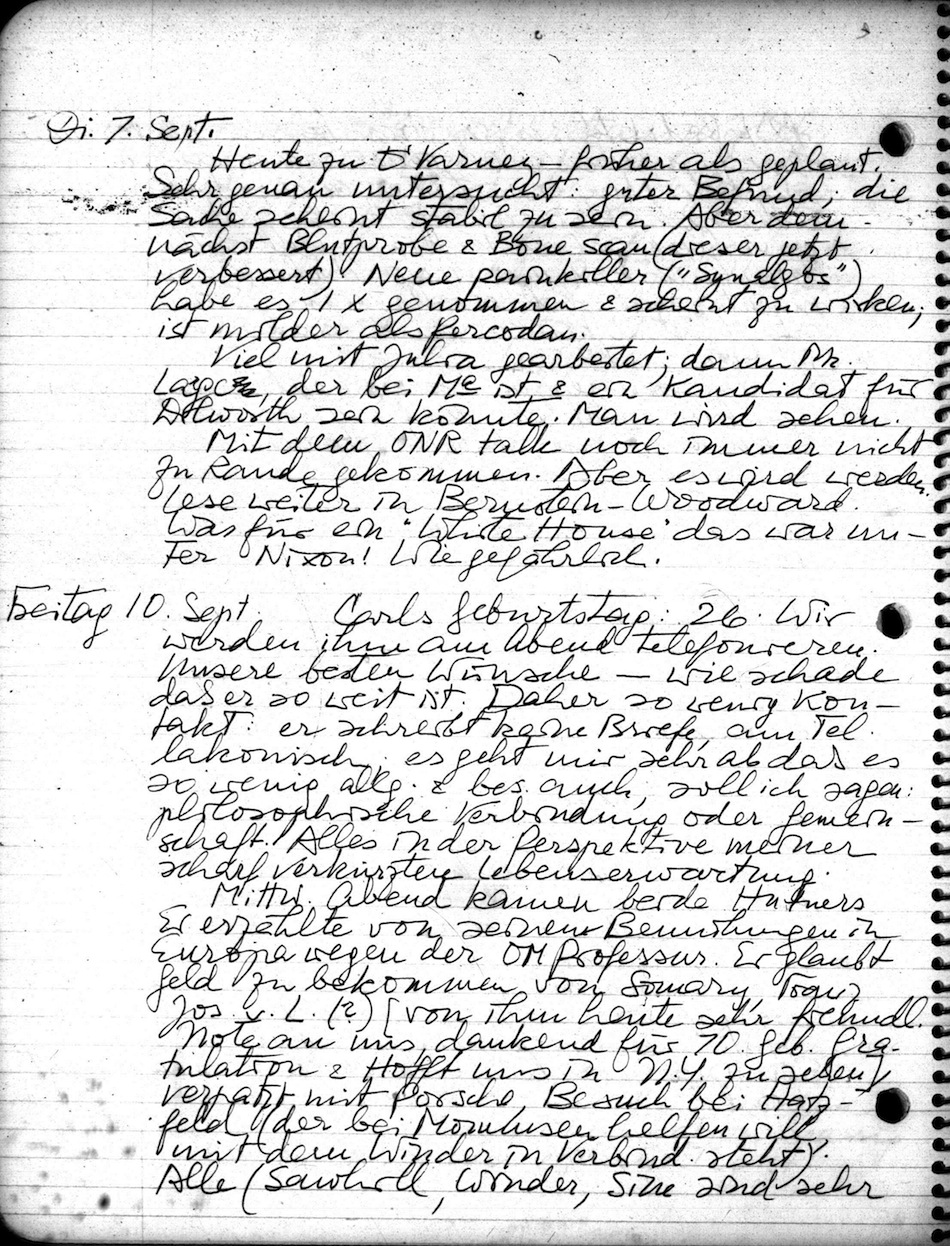 Di. 7. Sept.
Heute zu Varney – früher als geplant.
Sehr genau untersucht: guter Befund; die
Sache scheint stabil zu sein. Aber dem-
nächst Blutprobe & Bone scan (dieser jetzt
verbessert) Neue painkiller ("Synalgos")
habe es 1 x genommen & scheint zu wirken;
ist milder als Percodan.
Viel mit Julia gearbeitet; dann Mr.
der bei Mc ist & ein Kandidat für
sein könnte. Man wird sehen.
Mit dem ONR talk noch immer nicht
zu Rande gekommen. Aber es wird werden.
Lese weiter in Bernstein-Woodward.
Was für ein "White House" das war un-
ter Nixon! Wie gefährlich.
Freitag 10. Sept. Carls Geburtstag: 26. Wir
werden ihm am Abend telefonieren.
Unsere besten Wünsche – wie schade
dass er so weit ist. Daher so wenig Kon-
takt: er schreibt keine Briefe, am Tel.
lakonisch, es geht mir sehr ab dass es
so wenig allg. & bes. auch, soll ich sagen:
philosophische Verbindung oder Gemein-
schaft. Alles in der Perspektive meiner
scharf verkürzten Lebenserwartung.
Mittw. Abend kamen beide
Er erzählte von seinen Bemühungen in
Europa wegen der OM Professur. Er glaubt
Geld zu bekommen von Somary,
Jos. v. L. (?) [von ihm heute sehr freundl.
Note an uns, dankend für 70. Geb. Gra-
tulation & Hofft uns in N.Y. zu sehen]
mit Porsche, Besuch bei Hatz-
feld (der bei Mommsen helfen will,
mit dem Winder in Verbind. steht).
Alle (Sawhill, Winder, sind sehr